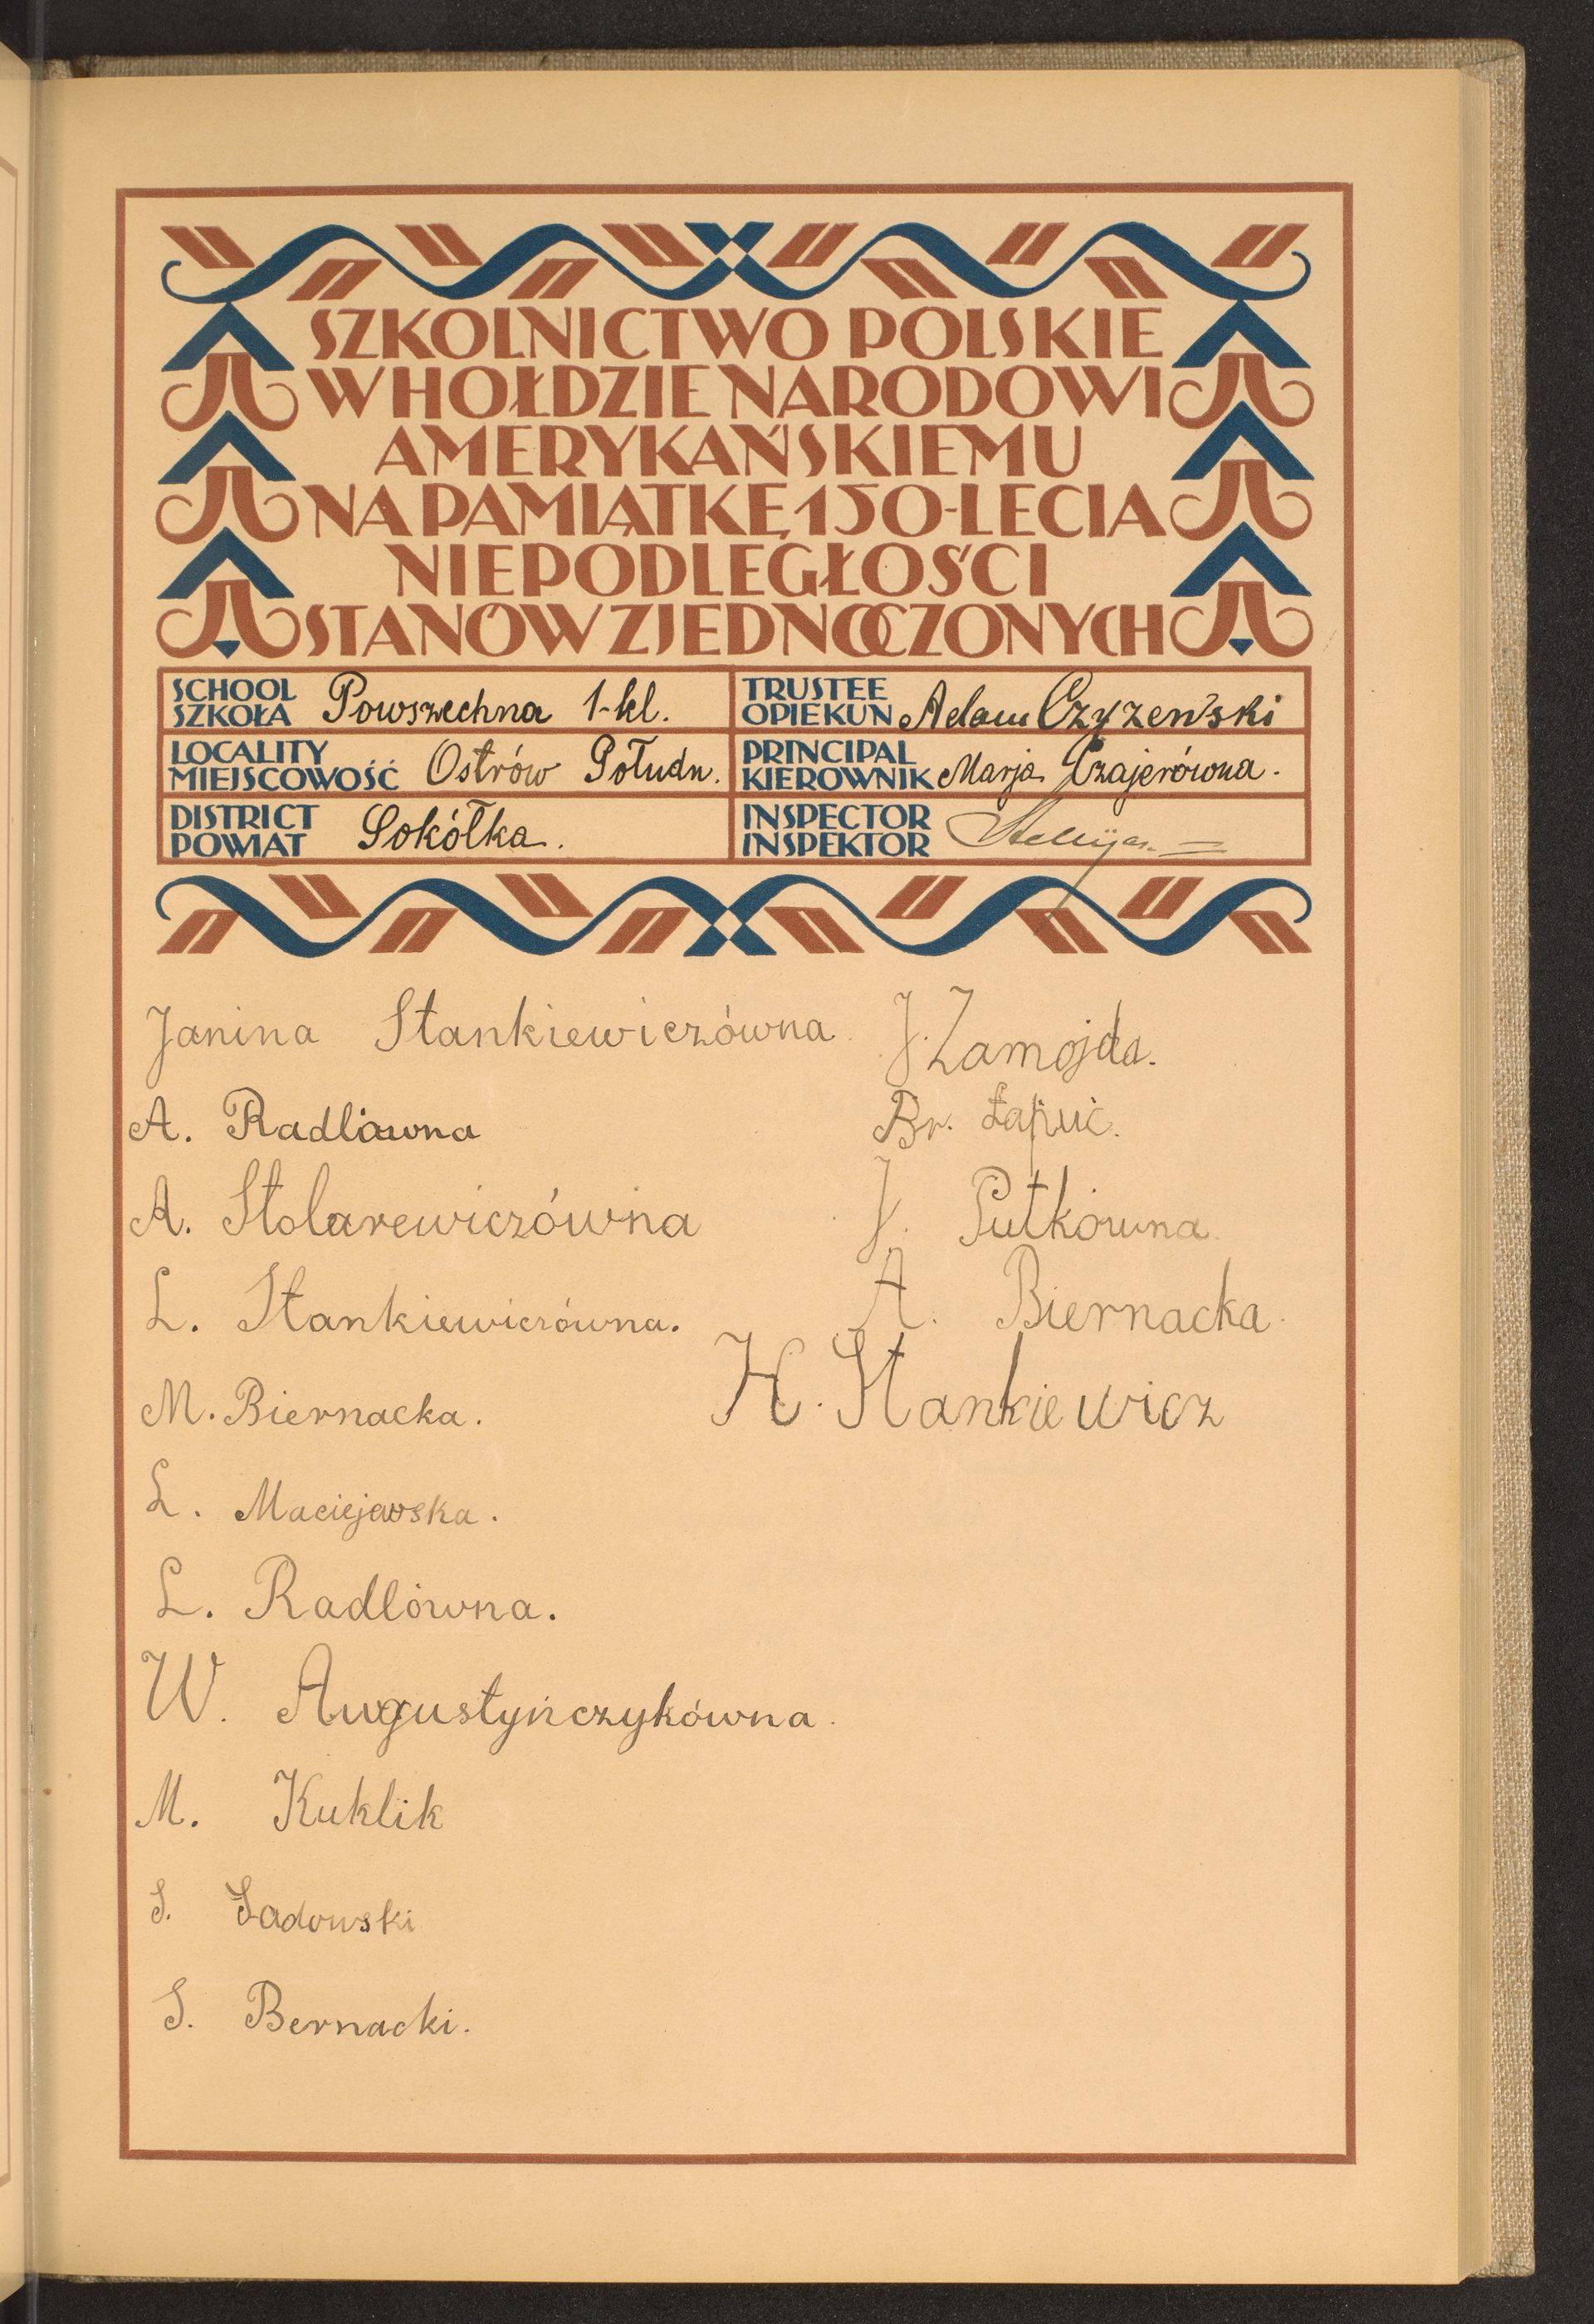 SZKOLNICTWO POLSKIE
W HOŁDZIE NARODOWI
AMERYKAŃSKIEMU
NA PAMIĄTKĘ 150-LECIA
NIEPODLEGŁOŚCI
STANÓW ZJEDNOCZONYCH
SCHOOL
SZKOŁA Powszechna 1-kl.
TRUSTEE
OPIEKUN Adam Czyżewski
LOCALITY
MIEJSCOWOŚĆ Ostrów Połudn.
PRINCIPAL
KIEROWNIK Marja Czajerówna.
DISTRICT
POWIAT Sokółka.
INSPECTOR
INSPEKTOR
Janina Stankiewiczówna
A. Radlówna
A. Stolarewiczówna
L. Stankiewiczówna.
M. Biernacka.
L. Maciejewska.
L. Radlówna.
W. Augustyńczykówna.
M. Kuklik
S. Sadowski
S. Bernacki.
J. Zamojda.
Br. Łapuć.
J. Putkówna.
A. Biernacka.
H. Stankiewicz